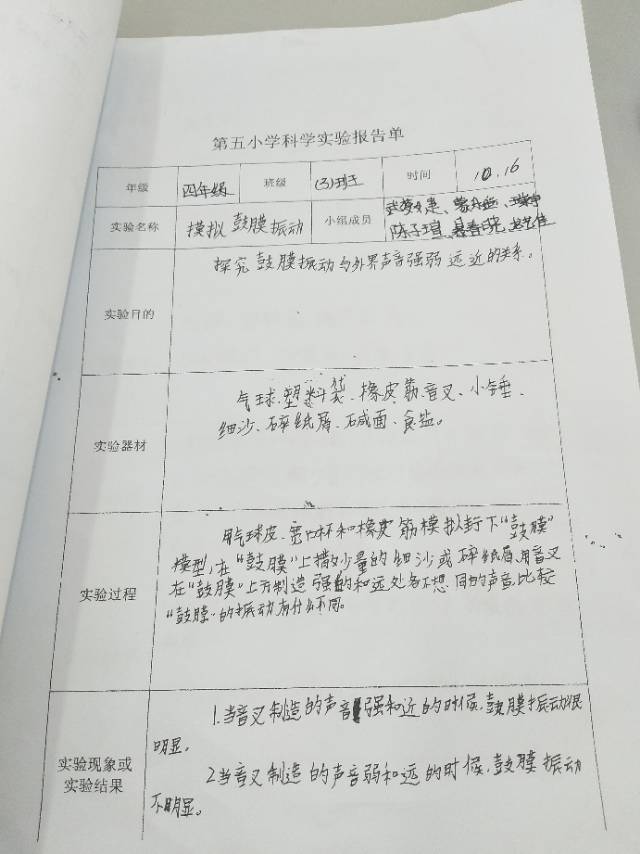 第五小学科学实验报告单
年级 四年级 班级 (3)班 时间 10.16
实验名称 模拟鼓膜振动 小组成员
陈子瑄、
实验目的
探究鼓膜振动与外界声音强弱远近的关系。
实验器材
气球、塑料袋、橡皮筋、音叉、小锤、
细沙、碎纸屑、石咸面、食盐。
实验过程
用气球皮、 杯和橡皮筋模拟封下“鼓膜”
模型,在“鼓膜”上撒少量的细沙或碎纸屑、用音叉
在“鼓膜”上方制造强弱和远处各不想同的声音,比较
“鼓膜”的振动有什么不同。
实验现象或
实验结果
1.当音叉制造的声音强和近的时候,鼓膜振动很
明显。
2.当音叉制造的声音弱和远的时候,鼓膜振动
不明显。